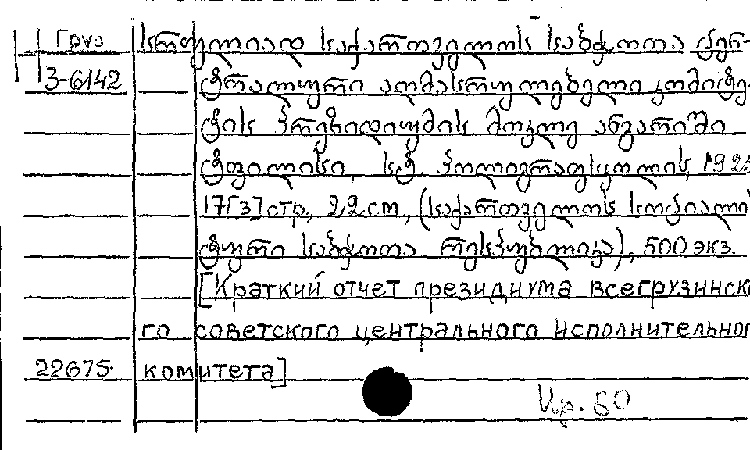 Груз სრულიად საქართველოს საბჭოთა ცენ-
3-6142 ტრალური აღმასრულებელი კომიტე-
ტის პრეზიდიუმის მოკლე ანგარიში
ტფილისი, სტ. პოლიგრაფსკოლის, 192
17[3] стр, 22 cm, (საქართველოს სოციალის
ტური საბჭოთა რესპუბლიკა), 500 экз.
[Краткий отчет президиума всегрузинск
го советского центрального исполнительног
22675 комитета]
Ир. 50